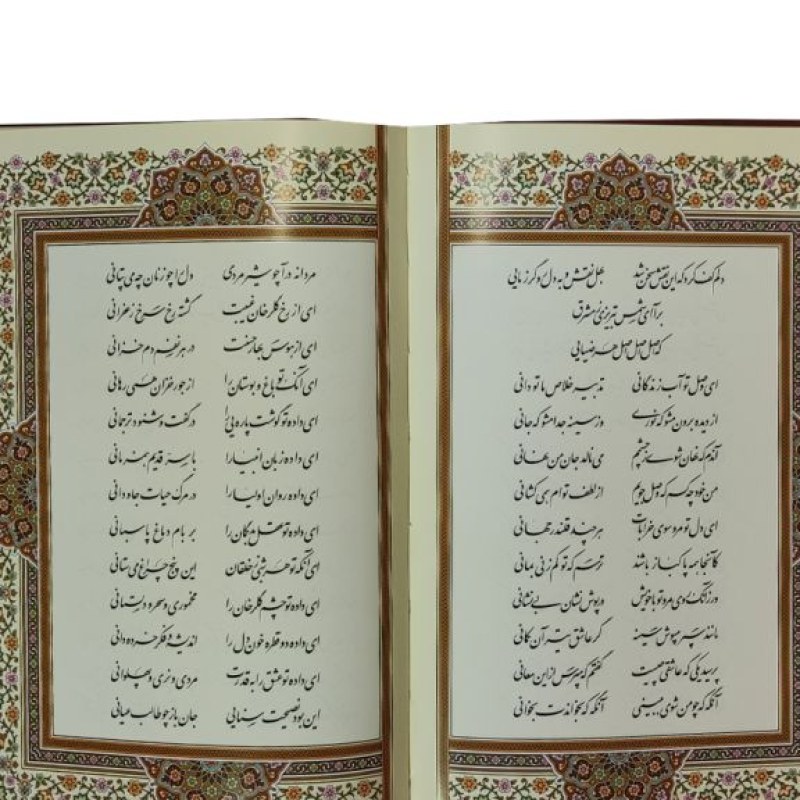 دلم کف کرد که این نقش سخن شد بهل نقش و به دل رو گر ز مایی
برآ ای شمس تبریزی ز مشرق
که اصل اصل اصل هر ضیایی
ای وصل تو آب زندگانی تدبیر خلاص ما تو دانی
از دیده برون مشو که نوری وز سینه جدا مشو که جانی
آن دم که نهان شوی ز چشمم می نالد جان من نهانی
من خود چه کسم که وصل جویم از لطف توام همی کشانی
ای دل تو مرو سوی خرابات هر چند قلندر جهانی
کانجا همه پاکباز باشند ترسم که تو کم زنی بمانی
ور زانک روی مرو تو با خویش درپوش نشان بی نشانی
مانند سپر مپوش سینه گر عاشق تیر آن کمانی
پرسید یکی که عاشقی چیست گفتم که مپرس از این معانی
آنگه که چو من شوی ببینی آنگه که بخواندت بخوانی
مردانه درآ چو شیرمردی دل را چو زنان چه می تپانی
ای از رخ گلرخان غیبت گشته رخ سرخ زعفرانی
ای از هوس بهار حسنت در هر نفسم دم خزانی
ای آنک تو باغ و بوستان را از جور خزان همی رهانی
ای داده تو گوشت پاره یی را در گفت و شنود ترجمانی
ای داده زبان انبیا را با سر قدیم همزبانی
ای داده روان اولیا را در مرگ حیات جاودانی
ای داده تو عقل بدگمان را بر بام دماغ پاسبانی
ای آنکه تو هر شبی ز خلقان این پنج چراغ می ستانی
ای داده تو چشم گلرخان را مخموری و سحر و دلستانی
ای داده دو قطره خون دل را اندیشه و فکر خرده دانی
ای داده تو عشق را به قدرت مردی و نری و پهلوانی
این بود نصیحت سنایی جان باز چو طالب عیانی